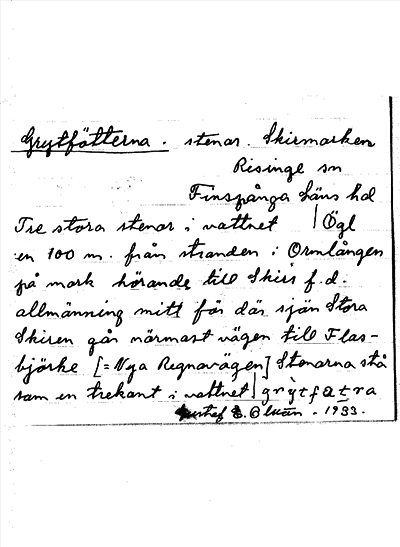 Grytfötterna. stenar. Skirmarken
Risinge sn
Finspånga läns hd
Tre stora stenar i vattnet | Ögl
en 100 m. från stranden i Ormlången
på mark hörande till Skirs f.d.
allmänning mitt för där sjön Stora
Skiren går närmast vägen till Flas-
björke [= Nya Regnavägen] Stenarna stå
som en trekant i vattnet | grỳtfœtra
Gustaf E. - 1933.